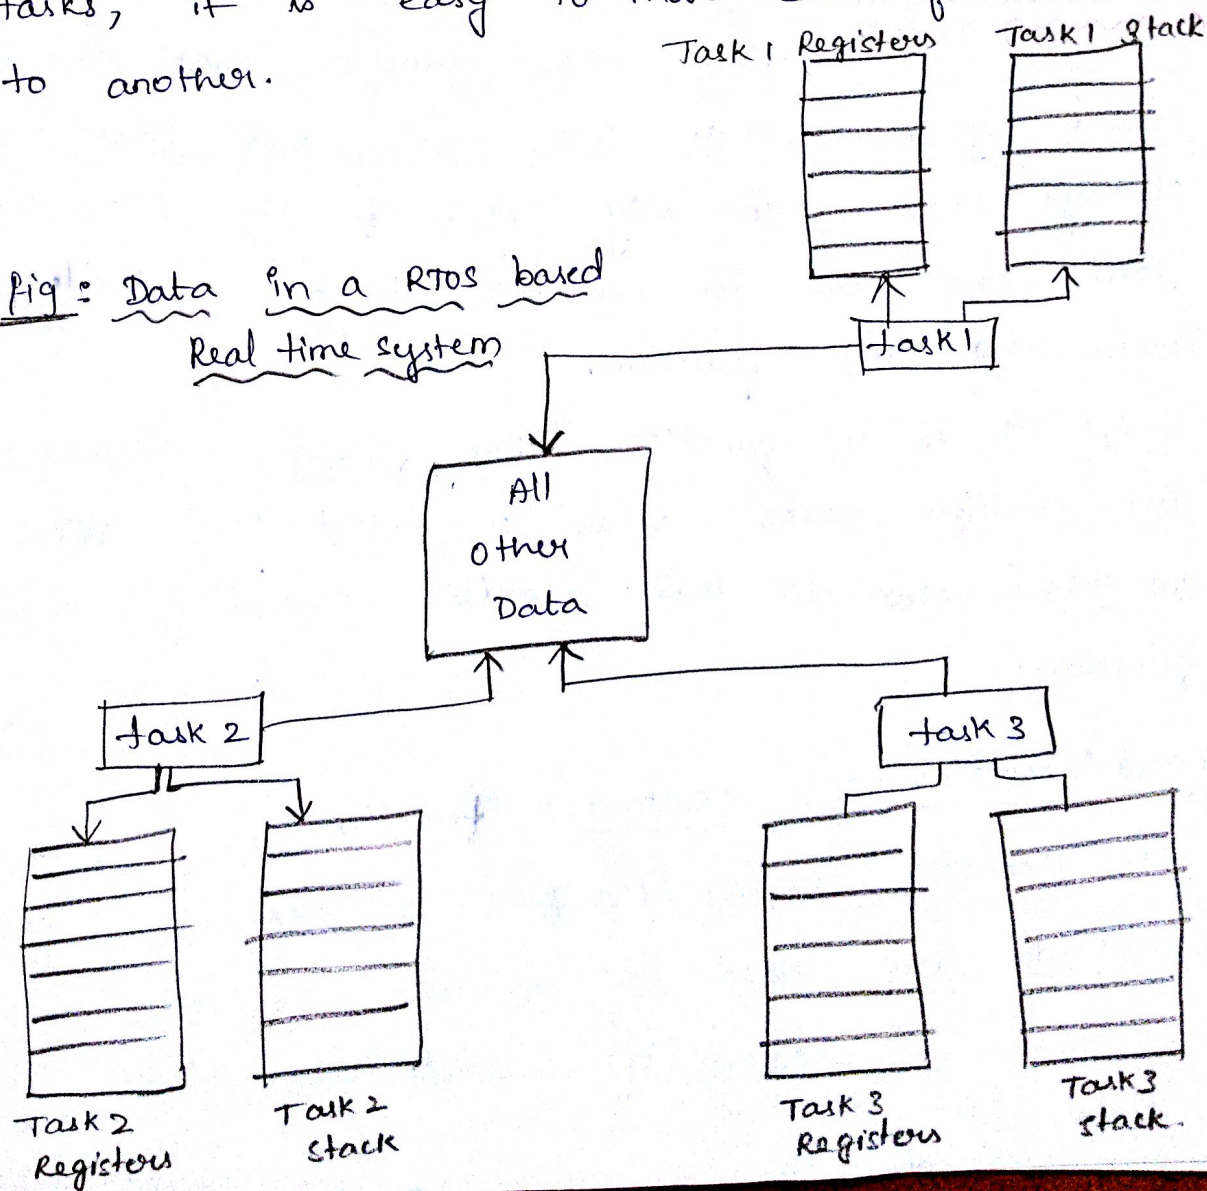 tasks, it is easy to
to another.
Task 1 Registers
Task 1 Stack
fig: Data in a RTOS based
Real time system
task 1
All
other
Data
task 2
task 3
Task 2
Registers
Task 2
stack
Task 3
Registers
Task 3
stack.